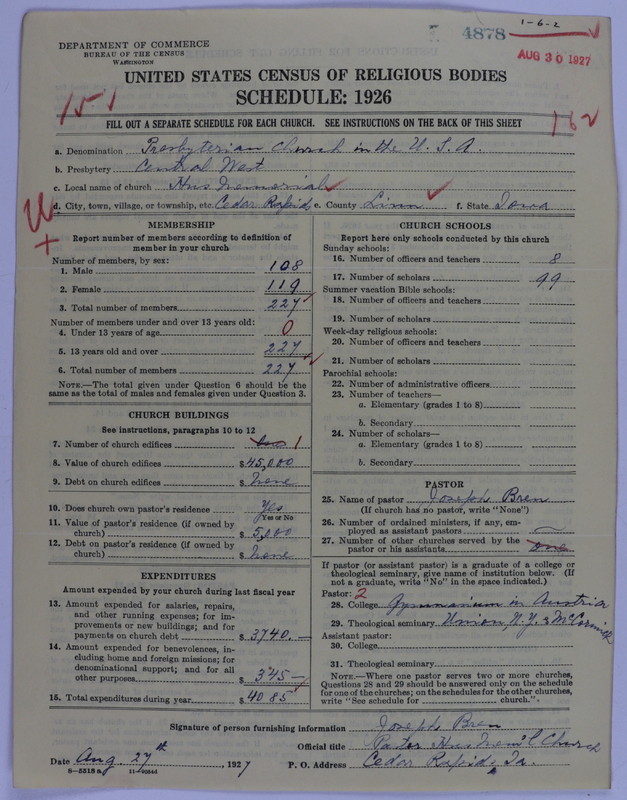 1-6-2
4878
AUG 30 1927
DEPARTMENT OF COMMERCE
BUREAU OF THE CENSUS
WASHINGTON
UNITED STATES CENSUS OF RELIGIOUS BODIES
SCHEDULE: 1926
151
162
FILL OUT A SEPARATE SCHEDULE FOR EACH CHURCH. SEE INSTRUCTIONS ON THE BACK OF THIS SHEET
a. Denomination Presbyterian Church in the U. S. A.
b. Presbytery Central West
c. Local name of church Hus Memorial
d. City, town, village, or township, etc. Cedar Rapids e. County Linn f. State Iowa
MEMBERSHIP
Report number of members according to definition of
member in your church
Number of members, by sex:
1. Male 108
2. Female 119
3. Total number of members 227
Number of members under and over 13 years old:
4. Under 13 years of age 0
5. 13 years old and over 227
6. Total number of members 227
NOTE.—The total given under Question 6 should be
same as the total of males and females given under Question 3.
CHURCH BUILDINGS
See instructions, paragraphs 10 to 12
7. Number of church edifices 1
8. Value of church edifices $ 45,000
9. Debt on church edifices $ None
10. Does church own pastor's residence Yes
Yes or No
11. Value of pastor's residence (if owned by
church) $ 5,000
12. Debt on pastor's residence (if owned by
church) $ None
EXPENDITURES
Amount expended by your church during last fiscal year
13. Amount expended for salaries, repairs,
and other running expenses; for im-
provements or new buildings; and for
payments on church debt $ 3740.—
14. Amount expended for benevolences, in-
cluding home and foreign missions; for
denominational support; and for all
other purposes $ 345—
15. Total expenditures during year $ 4085
CHURCH SCHOOLS
Report here only schools conducted by this church
Sunday schools:
16. Number of officers and teachers 8
17. Number of scholars 99
Summer vacation Bible schools:
18. Number of officers and teachers
19. Number of scholars
Week-day religious schools:
20. Number of officers and teachers
21. Number of scholars
Parochial schools:
22. Number of administrative officers
23. Number of teachers—
a. Elementary (grades 1 to 8)
b. Secondary
24. Number of scholars—
a. Elementary (grades 1 to 8)
b. Secondary
PASTOR
25. Name of pastor Joseph Bren
(If church has no pastor, write "None")
26. Number of ordained ministers, if any, em-
ployed as assistant pastors —
27. Number of other churches served by the
pastor or his assistants
If pastor (or assistant pastor) is a graduate of a college or
theological seminary, give name of institution below. (If
not a graduate, write "No" in the space indicated.)
Pastor: 2
28. College Gymnasium in Austria
29. Theological seminary Union, N.Y. & McCormick
Assistant pastor:
30. College
31. Theological seminary
NOTE.—Where one pastor serves two or more churches,
Questions 28 and 29 should be answered only on the schedule
for one of the churches; on the schedules for the other churches,
write "See schedule for church."
Signature of person furnishing information Joseph Bren
Official title Pastor Hus Mem'l Church
Date Aug. 27th, 1927 P. O. Address Cedar Rapids Ia.
8-5518a